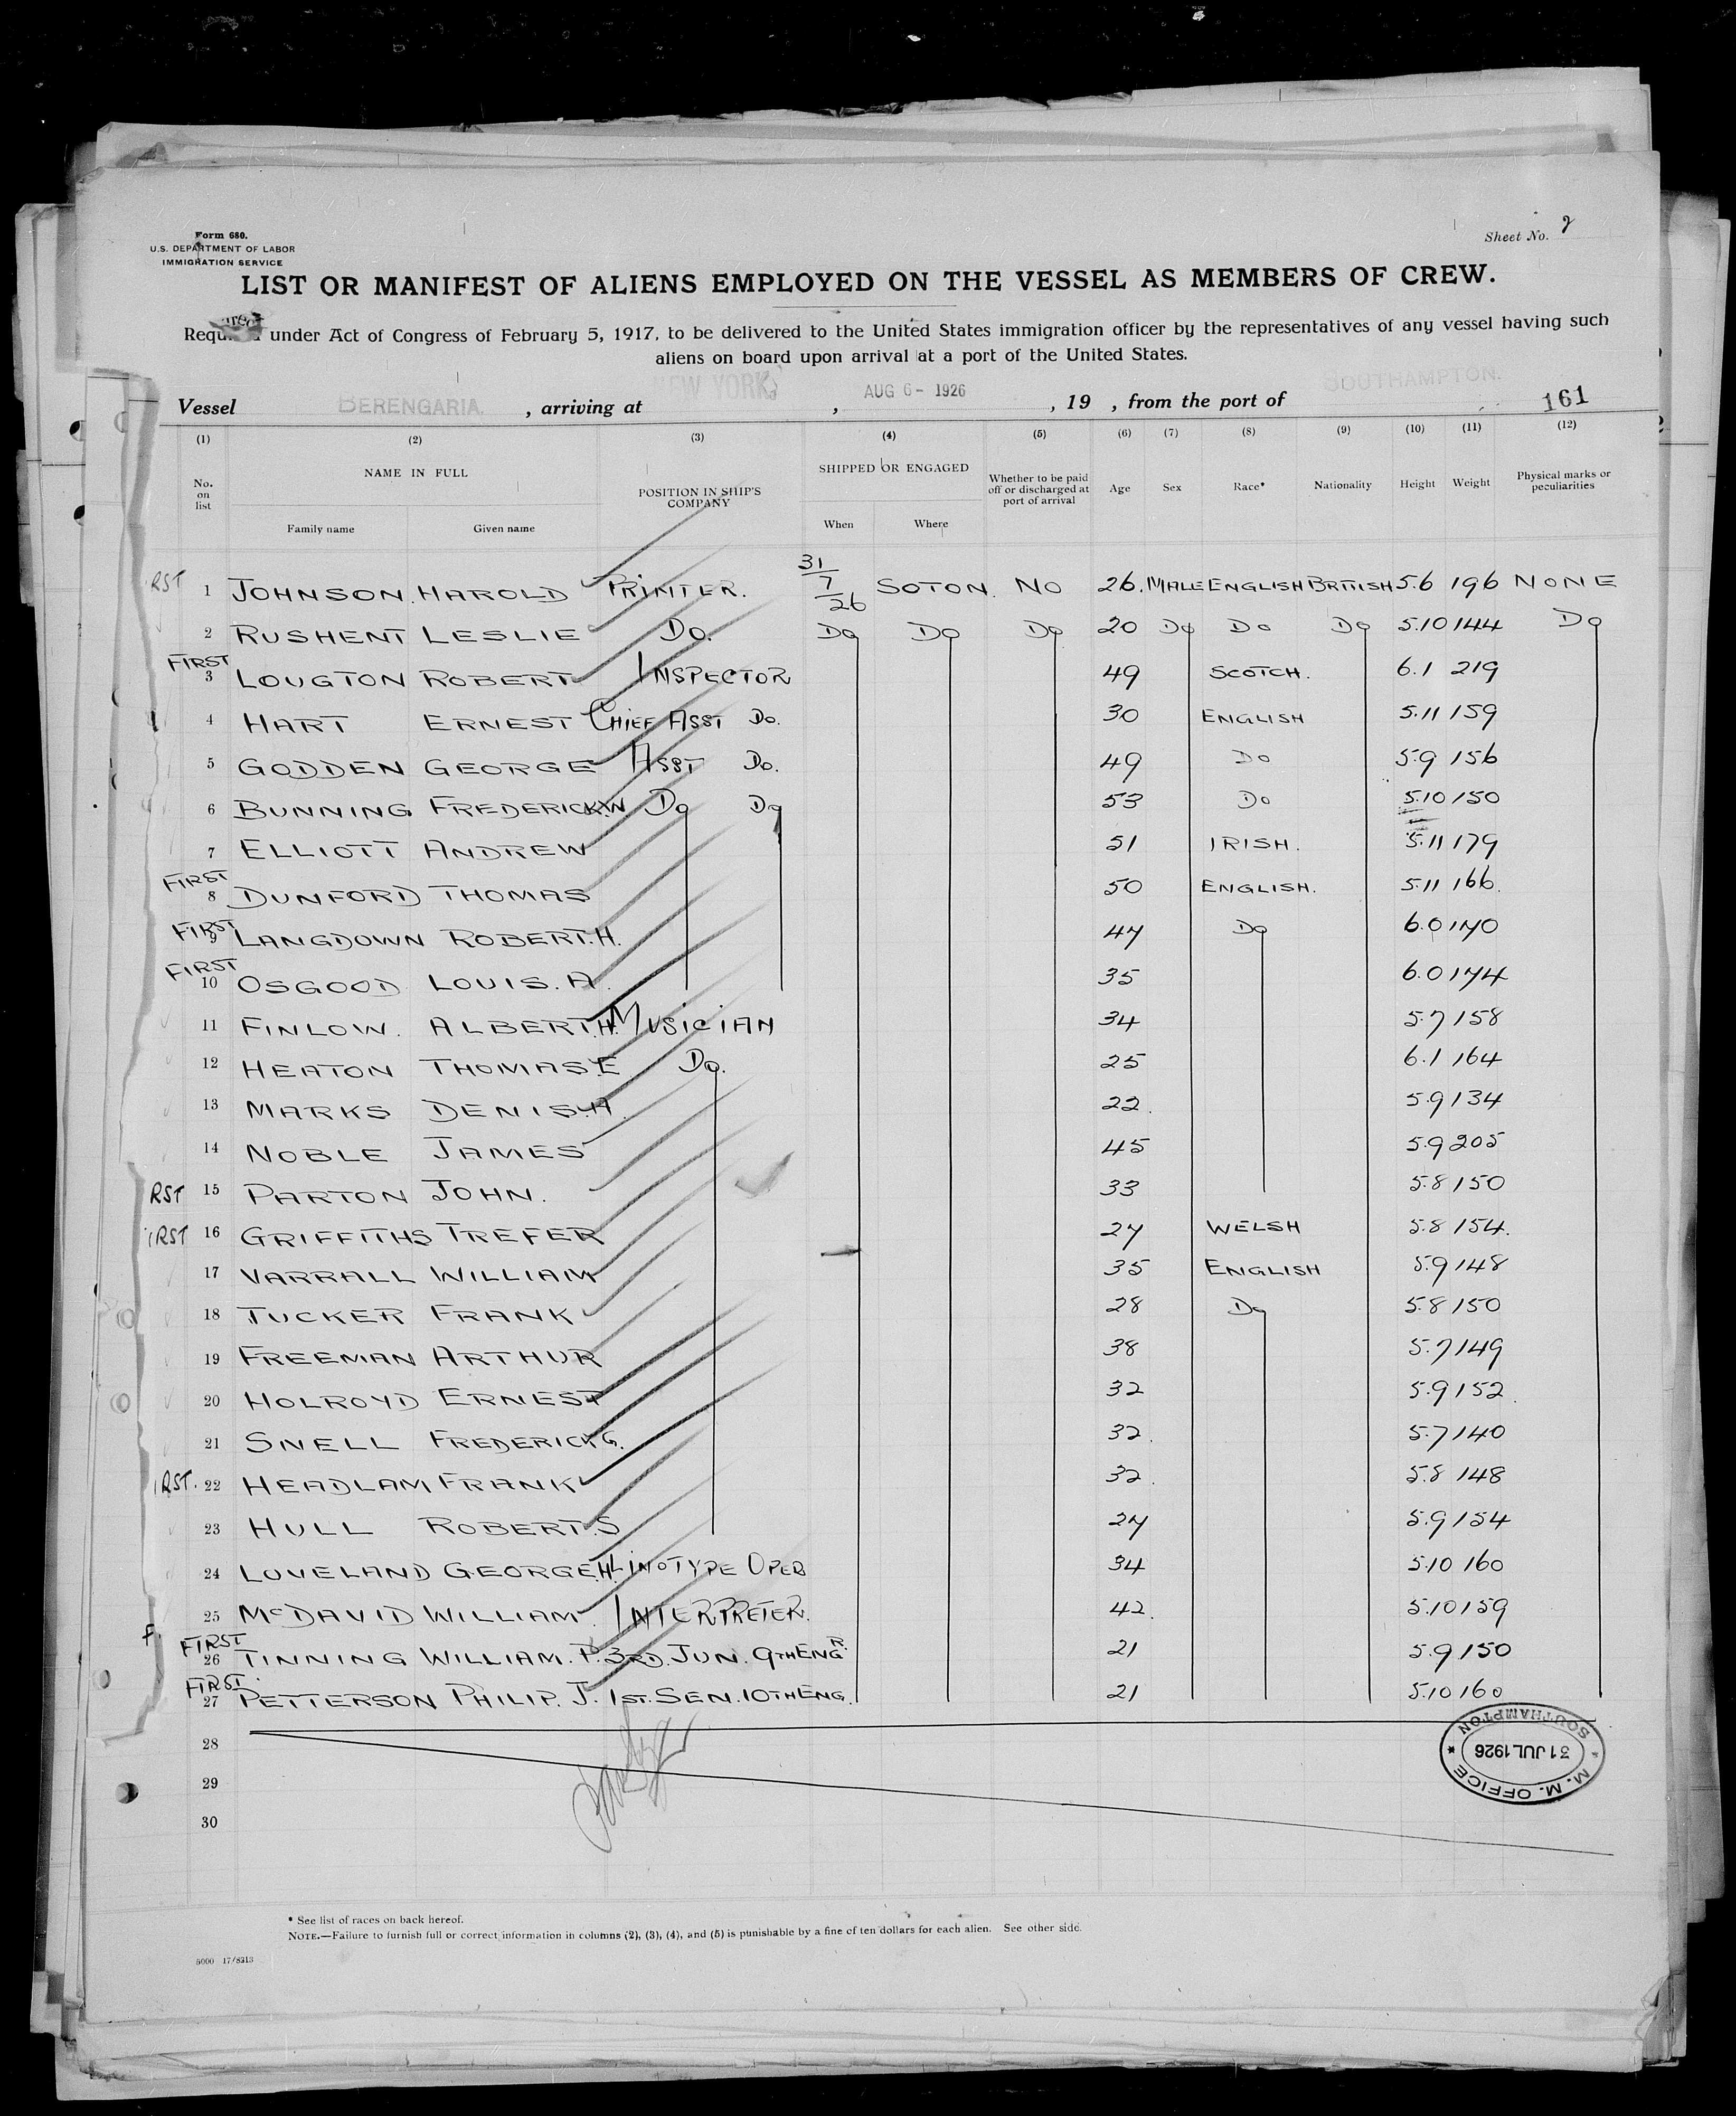 Form 680.
U.S. DEPARTMENT OF LABOR
IMMIGRATION SERVICE
Sheet No. 2
LIST OR MANIFEST OF ALIENS EMPLOYED ON THE VESSEL AS MEMBERS OF CREW.
under Act of Congress of February 5, 1917, to be delivered to the United States immigration officer by the representatives of any vessel having such
aliens on board upon arrival at a port of the United States.
Vessel BERENGARIA. , arriving at NEW YORK , AUG 6 - 1926 , 19 , from the port of SOUTHAMPTON. 161
(1) (2) (3) (4) (5) (6) (7) (8) (9) (10) (11) (12)
No. on list NAME IN FULL Family name Given name POSITION IN SHIP'S COMPANY SHIPPED OR ENGAGED When Where Whether to be paid off or discharged at port of arrival Age Sex Race* Nationality Height Weight Physical marks or peculiarities
RST 1 JOHNSON. HAROLD PRINTER. 31/7/26 SOTON. NO 26. MALE ENGLISH BRITISH 5.6 196 NONE
2 RUSHENT LESLIE Do. Do Do Do 20 Do Do Do 5.10 144 Do
FIRST 3 LOUGTON ROBERT INSPECTOR 49 SCOTCH. 6.1 219
4 HART ERNEST CHIEF ASST Do. 30 ENGLISH 5.11 159
5 GODDEN GEORGE ASST Do. 49 Do 5.9 156
6 BUNNING FREDERICK.W Do Do 53 Do 5.10 150
7 ELLIOTT ANDREW 51 IRISH. 5.11 179
FIRST 8 DUNFORD THOMAS 50 ENGLISH. 5.11 166.
FIRST 9 LANGDOWN ROBERT.H. 47 Do 6.0 170
FIRST 10 OSGOOD LOUIS.A. 35 6.0 174
11 FINLOW. ALBERT.H. MUSICIAN 34 5.7 158
12 HEATON THOMAS.E Do. 25 6.1 164
13 MARKS DENIS.A. 22. 5.9 134
14 NOBLE JAMES 45 5.9 205
RST 15 PARTON JOHN. 33 5.8 150
IRST 16 GRIFFITHS TREFER 27 WELSH 5.8 154.
17 VARRALL WILLIAM 35 ENGLISH 5.9 148
18 TUCKER FRANK 28 Do 5.8 150
19 FREEMAN ARTHUR 38 5.7 149
20 HOLROYD ERNEST 32 5.9 152.
21 SNELL FREDERICK G. 32. 5.7 140
IRST. 22 HEADLAM FRANK 32. 5.8 148
23 HULL ROBERT.S 27 5.9 154
24 LOVELAND GEORGE.H. LINOTYPE OPER 34 5.10 160
25 McDAVID WILLIAM. INTERPRETER. 42. 5.10 159
F. FIRST 26 TINNING WILLIAM. P. 3RD. JUN. 9TH ENGR. 21 5.9 150
FIRST. 27 PETTERSON PHILIP. J. 1ST. SEN. 10TH ENG. 21 5.10 160
28
29
30
M. M. OFFICE * SOUTHAMPTON * 31 JUL 1926
* See list of races on back hereof.
NOTE.—Failure to furnish full or correct information in columns (2), (3), (4), and (5) is punishable by a fine of ten dollars for each alien. See other side.
5000 17/8213